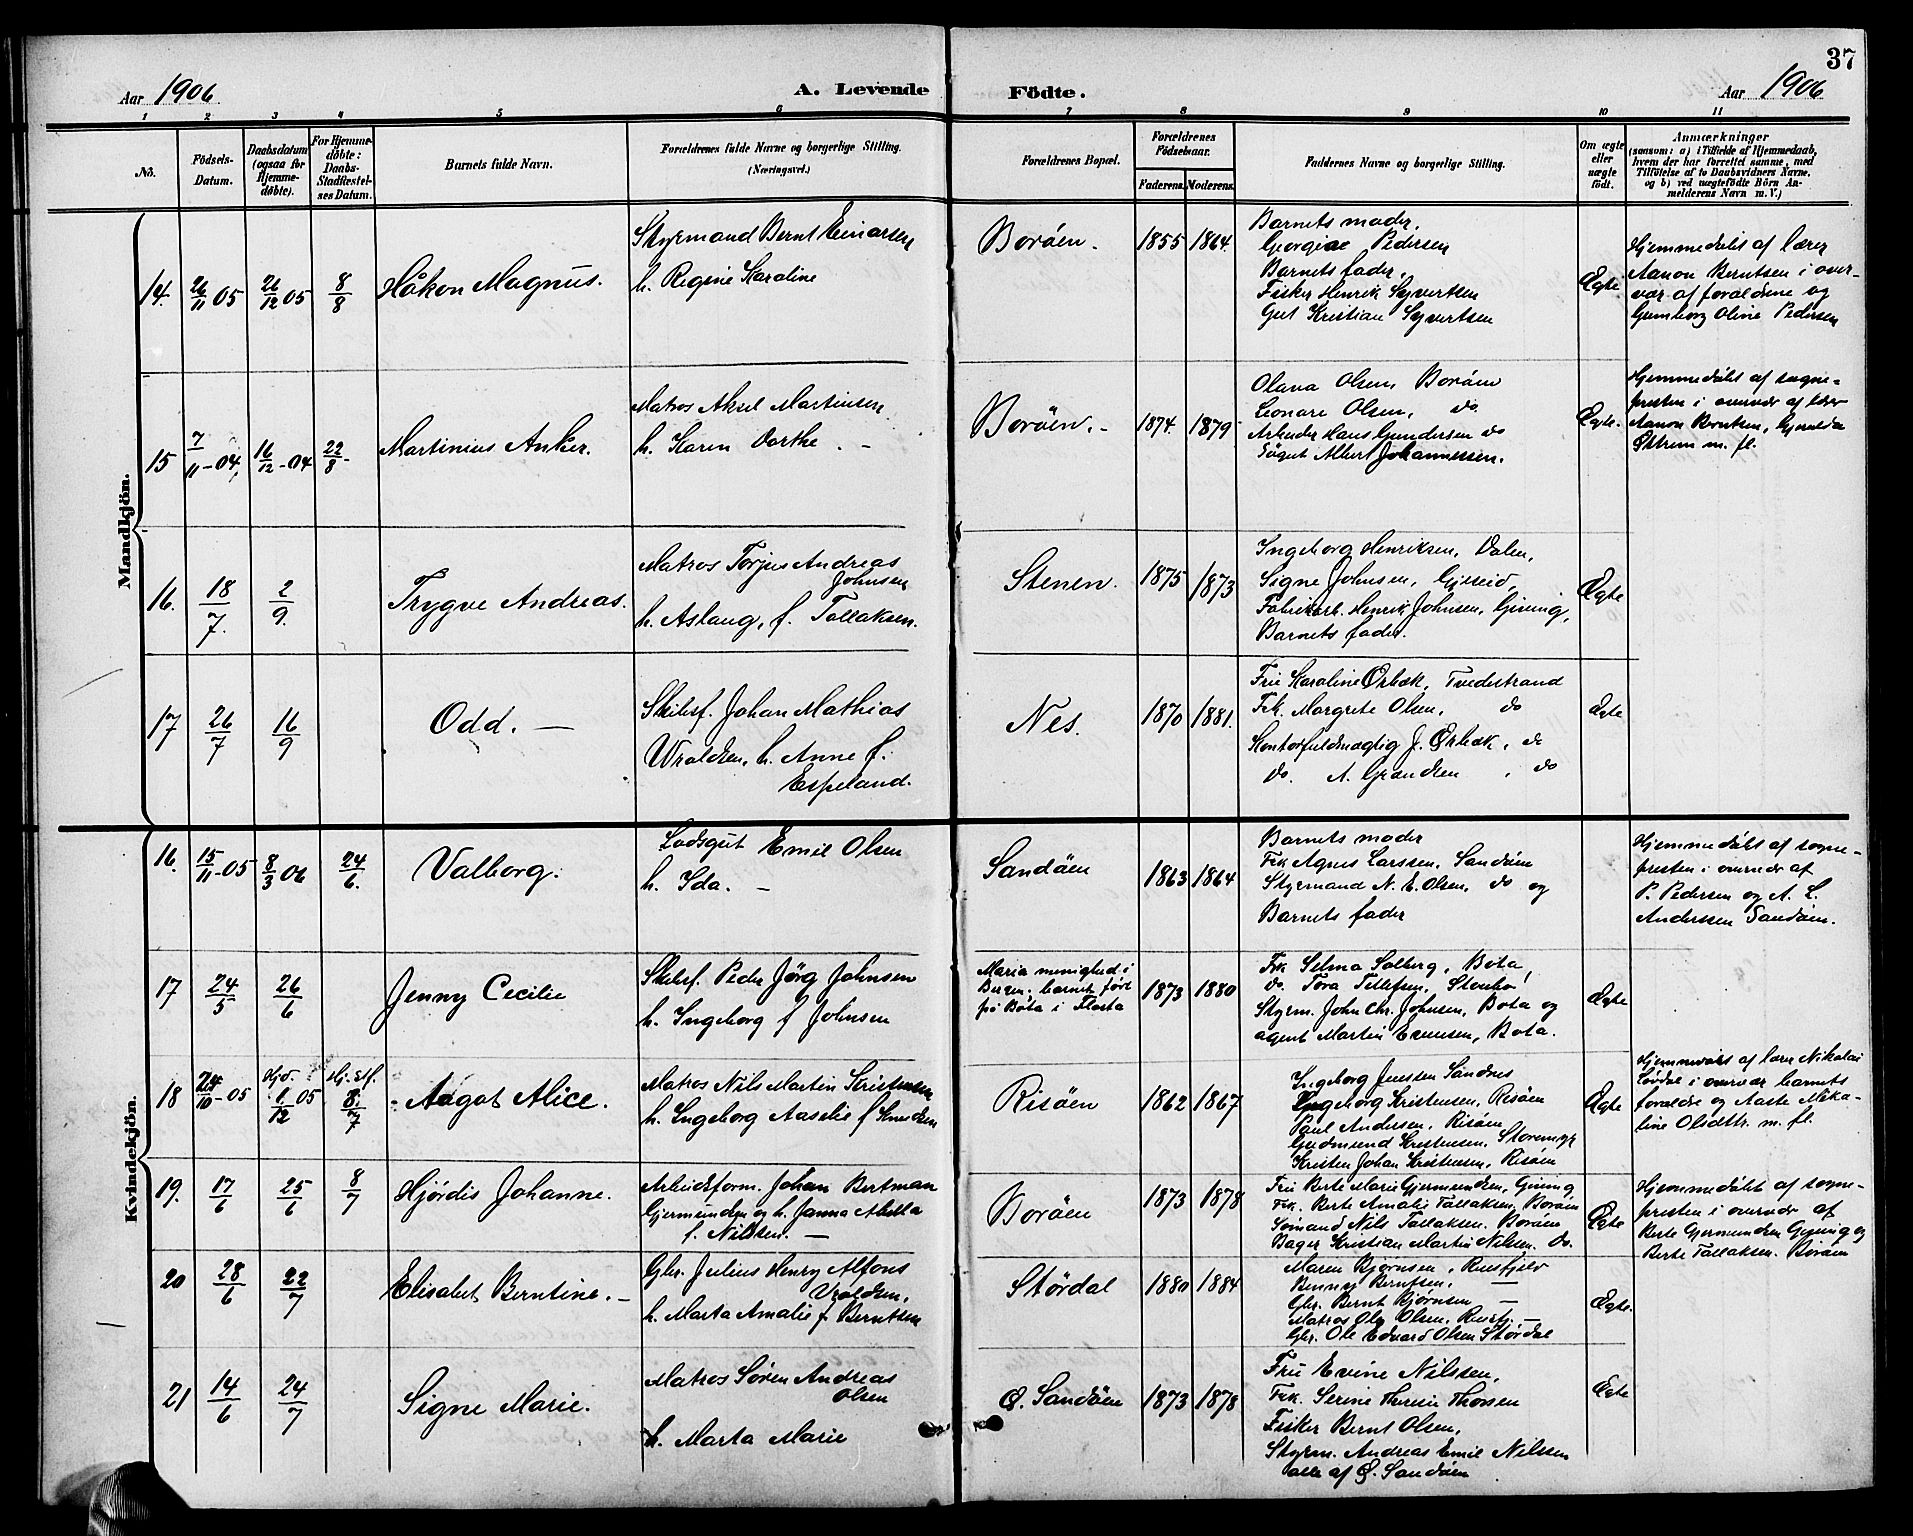 37
Aar 1906 A. Levende Födte. Aar 1906
1 2 3 4 5 6 7 8 9 10 11
No. Födsels-Datum. Daabsdatum (ogsaa for Hjemmedöbte). For Hjemmedöbte: Daabs-Stadfæstelses Datum. Barnets fulde Navn. Forældrenes fulde Navne og borgerlige Stilling. (Næringsvei.) Forældrenes Bopæl. Forældrenes Födselsaar. Faderens. Moderens. Faddernes Navne og borgerlige Stilling. Om ægte eller uægte födt. Anmærkninger (saasom: a) i Tilfælde af Hjemmedaab, hvem der har forrettet samme, med Tilföielse af to Daabsvidners Navne, og b) ved uægtefödte Börn Anmelderens Navn m. V.)
Mandkjön.
14. 26/11 05 26/12 05 8/8 Håkon Magnus.
Styrmand Bernt Einarsen
h. Regine Karoline
Borøen. 1855 1864.
Barnets moder,
Georgine Pedersen
Barnets fader,
Fisker Henrik Syvertsen
Gut Kristian Syvertsen
Ægte
Hjemmedøbt af lærer
Aanon Berntsen i over-
vær af forældrene og
Gumborg Oline Pedersen
15 7/11-04, 16/12-04 22/8- Martinius Anker.
Matros Aksel Martinsen
h. Karen Dorthe. -
Borøen. - 1874. 1879
Olava Olsen Borøen
Leonare Olsen, do
Arbeider Hans Gundersen do
Søgut Albert Johannessen.
Ægte.
Hjemmedøbt af sogne-
presten i overvær af lærer
Aanon Berntsen,
Østrem m. fl.
16. 18/7. 2/9. Trygve Andreas.
Matros Torjus Andreas
Johnsen
h. Aslaug, f. Tallaksen.
Stenen. 1875 1873
Ingeborg Henriksen, Dalen,
Signe Johnsen,
Fabrikarb. Henrik Johnsen, Gjeving,
Barnets fader.
Ægte
17 26/7 16/9 Odd. —
Skibsf. Johan Mathias
Vraldsen, h. Anne f.
Espeland.
Nes. 1870 1881.
Frue Karoline Ørbæk, Tvedestrand
Frk. Margrete Olsen, do
Kontorfuldmægtig J. Ørbæk, do
do. A. Grandsen, do
Ægte
Kvindekjön.
16. 15/11-05 8/3 06 24/6. Valborg.
Lodsgut Emil Olsen
h. Ida. -
Sandøen 1863 1864
Barnets moder
Frk Agnes Larssen, Sandøen
Styrmand N. E. Olsen, do og
Barnets fader
Hjemmedøbt af sogne-
presten i overvær af
P. Pedersen og A. L.
Anderssen Sandøen.
17 24/5 26/6 Jenny Cecilie
Skibsf. Peder Jörg Johnsen
h. Ingeborg f Johnsen
Maria menighed i
Bergen, barnet ført
på Bota i Flosta
1873 1880
Frk Selma Solberg, Bota,
do. Tora Tellefsen,
Styrm. John Chr. Johnsen, Bota og
agent Martin Evensen, Bota.
Ægte
18 24/10-05 Hjd. 1/12 05 Hj. st. 8/7 Aagot Alice.
Matros Nils Martin Kristensen
h. Ingeborg Aaselie f
Risøen 1862 1867
Ingeborg Jenssen Sandnes
Ingeborg Kristensen, Risøen
Paul Andersen, Risøen
Gudmund Kristensen, Storemyr
Kristen Johan Kristensen, Risøen
Ægte
Hjemmedøbt af lærer Nikolai
Løvdal i overvær barnets
forældre og Aaste Nika-
line Olsdttr. m. fl.
19. 17/6 25/6 8/7 Hjördis Johanne.
Arbeidsform. Johan Bertman
Gjermundsen og h. Janna Abella
f. Nilssen. —
Borøen 1873 1878
Fru Berte Marie Gjermundsen, Gjeving
Frk. Berte Amalie Tallaksen, Borøen
Sømand Nils Tallaksen. Borøen
Bager Kristian Martin Nilsen. do.
Ægte
Hjemmedøbt af sogne-
presten i overvær af
Berte Gjermundsen Gjeving og
Berte Tallaksen. Borøen
20 28/6 22/7 Elisabet Berntine. -
Gbr. Julius Henry Alfons
Vraldsen,
h. Marta Amalie f Berntsen
Stördal 1880 1884
Maren Bjørnsen,
Benney Berntsen, —
Gbr. Bernt Bjørnsen —
Matros Ole Olsen,
Gbr. Ole Edvard Olsen Stördal
Ægte.
21 14/6 24/7 Signe Marie.
Matros Sören Andreas
Olsen
h. Marta Marie
Ø. Sandøen 1873 1878
Fru Evine Nilssen,
Frk. Serine Theresie Thorsen
Fisker Bernt Olsen,
Styrm. Andreas Emil Nilssen
alle af Ø. Sandøen
Ægte